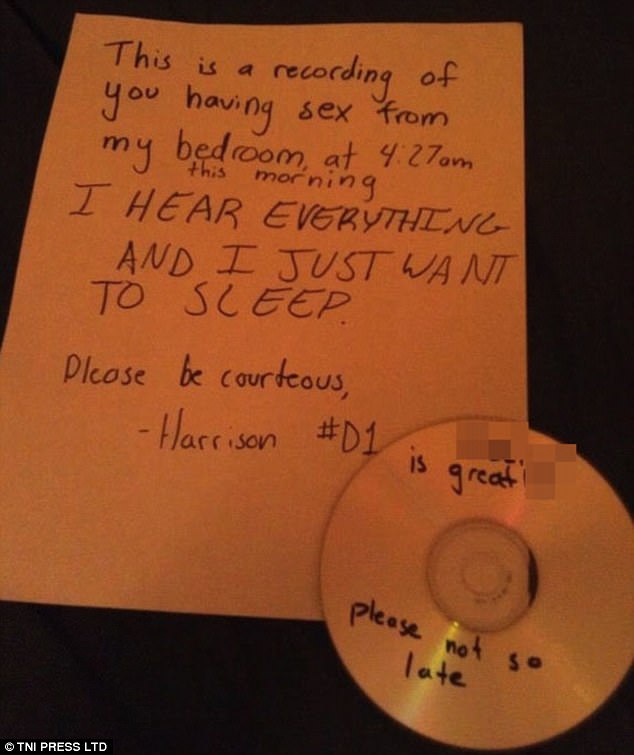 This is a recording of
you having sex from
my bedroom, at 4:27am
this morning
I HEAR EVERYTHING
AND I JUST WANT
TO SLEEP.
Please be courteous,
- Harrison #D1
is great
please not so
late
© TNI PRESS LTD